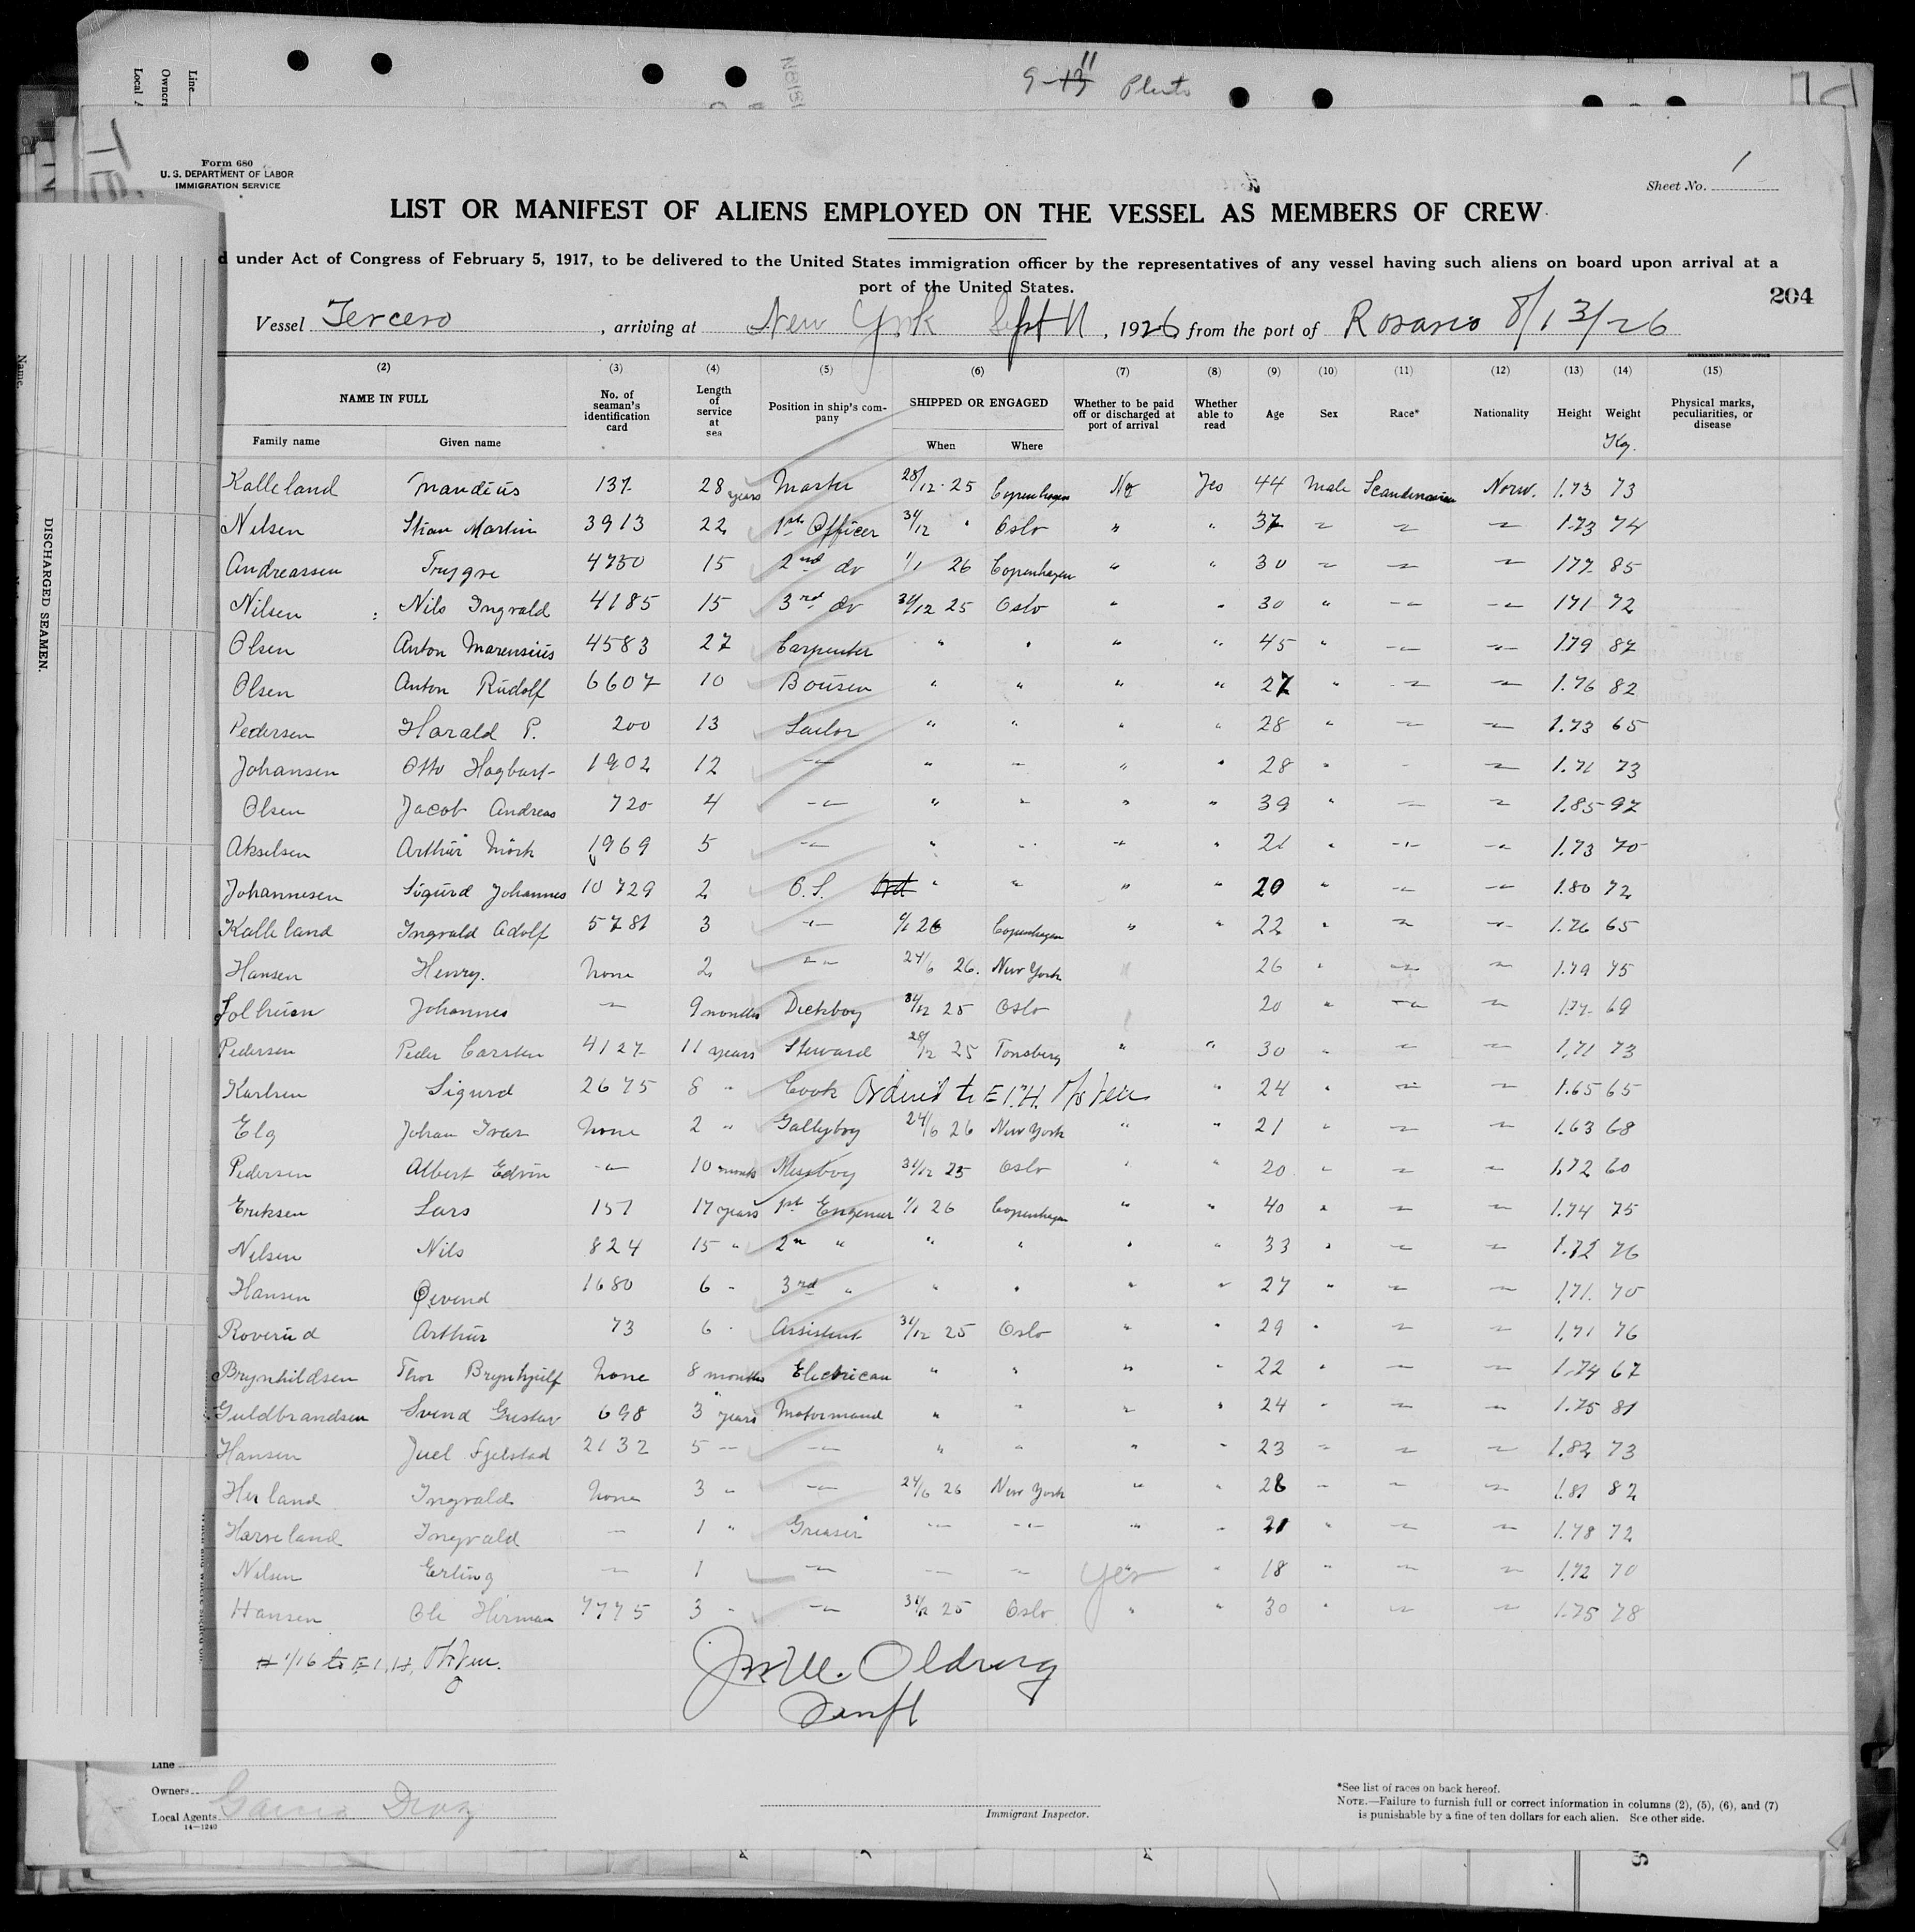 9-11 Pluto
Form 680
U. S. DEPARTMENT OF LABOR
IMMIGRATION SERVICE
Sheet No. 1
LIST OR MANIFEST OF ALIENS EMPLOYED ON THE VESSEL AS MEMBERS OF CREW
under Act of Congress of February 5, 1917, to be delivered to the United States immigration officer by the representatives of any vessel having such aliens on board upon arrival at a
port of the United States.
204
Vessel Tercero, arriving at New York Sept 11, 1926 from the port of Rosario 8/13/26
(2) (3) (4) (5) (6) (7) (8) (9) (10) (11) (12) (13) (14) (15)
NAME IN FULL No. of seaman's identification card Length of service at sea Position in ship's company SHIPPED OR ENGAGED Whether to be paid off or discharged at port of arrival Whether able to read Age Sex Race* Nationality Height Weight Physical marks, peculiarities, or disease
Family name Given name When Where Kg.
Kalleland Mandius 137 28 years Master 28/12-25 Copenhagen No Yes 44 Male Scandinavian Norw. 1.73 73
Nilsen Stian Martin 3913 22 1st Officer 31/12 " Oslo " " 37 " " " 1.73 74
Andreassen Trygve 4750 15 2nd do 1/1 26 Copenhagen " " 30 " " " 177 85
Nilsen Nils Ingvald 4185 15 3rd do 31/12 25 Oslo " " 30 " " " 171 72
Olsen Anton Marensius 4583 27 Carpenter " " " " 45 " " " 179 87
Olsen Anton Rudolf 6607 10 Bousen " " " " 27 " " " 1.76 82
Pedersen Harald P. 200 13 Sailor " " " " 28 " " " 1.73 65
Johansen Otto Hagbart 1902 12 " " " " " 28 " " " 1.71 73
Olsen Jacob Andreas 720 4 " " " " " 39 " " " 1.85 97
Akselsen Arthur Mørk 1969 5 " " " " " 21 " " " 1.73 70
Johannesen Sigurd Johannes 10729 2 O.S. " " " " 20 " " " 1.80 72
Kalleland Ingvald Adolf 5781 3 " 1/1 26 Copenhagen " " 22 " " " 1.76 65
Hansen Henry. None 2 " 24/6 26. New York 26 " " " 1.79 75
Solhuen Johannes " 9 months Deckboy 31/12 25 Oslo 20 " " " 69
Pedersen Peder Carsten 4127 11 years Steward 28/12 25 Tonsberg " " 30 " " " 1,71 73
Karlsen Sigurd 2675 8 " Cook Ordered to E.I.H. " 24 " " " 1.65 65
Elg Johan Ivar None 2 " Galleyboy 24/6 26 New York " " 21 " " " 1.63 68
Pedersen Albert Edvin " 10 months Messboy 31/12 25 Oslo " " 20 " " " 1.72 60
Eriksen Lars 157 17 years 1st Engeneer 1/1 26 Copenhagen " " 40 " " " 1.74 75
Nilsen Nils 824 15 " 2nd " " " " " 33 " " " 1.72 76
Hansen Øivend 1680 6 " 3rd " " " " " 27 " " " 1,71. 70
Roverud Arthur 73 6 " Assistent 31/12 25 Oslo " " 29 " " " 1,71 76
Brynhildsen Thor Brynhjulf None 8 months Electrican " " " " 22 " " " 1.74 67
Guldbrandsen Svend Gustav 698 3 years Motormand " " " " 24 " " " 1.75 81
Hansen Juel Fjelstad 2132 5 " " " " " " 23 " " " 1.82 73
Herland Ingvald None 3 " " 24/6 26 New York " " 28 " " " 1.81 82
Harveland Ingvald " 1 " Greaser " " " " 21 " " " 1.78 72
Nilsen Erling " 1 " " " Yes " 18 " " " 1.72 70
Hansen Ole Herman 7775 3 " " 31/12 25 Oslo " " 30 " " " 1.75 78
# 1/16 to E.I.H.
Line
Owners
Local Agents Garcia Diaz
14—1240
Immigrant Inspector.
*See list of races on back hereof.
NOTE.—Failure to furnish full or correct information in columns (2), (5), (6), and (7)
is punishable by a fine of ten dollars for each alien. See other side.
DISCHARGED SEAMEN.
Name